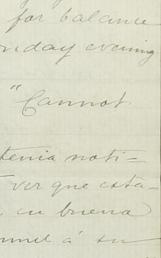 for balance
day evening
"Cannot
tenia noti-
ver que esta-
en buena
á su